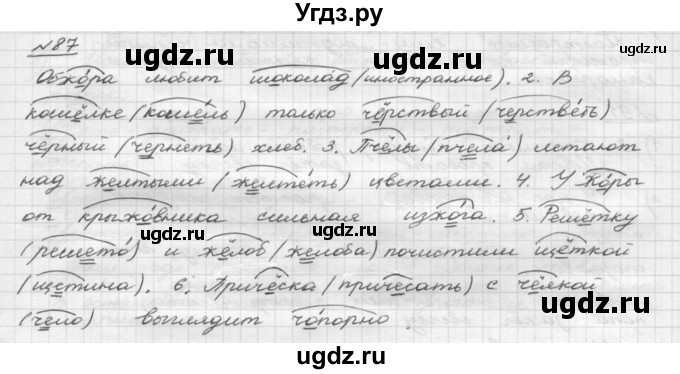 Угдз.ру
№87
ugdz.ru ugdz.ru
Обжора любит шоколад (иностранное). 2. В
кошёлке (кошель) только чёрствый (черстветь)
чёрный (чернеть) хлеб. 3. Пчёлы (пчела) летают
над желтыми (желтеть) цветами. 4. У Жоры
от крыжовника сильная изжога. 5. Решётку
(решето) и жёлоб (желоба) почистили щёткой
(щетина). 6. Причёска (причесать) с чёлкой
(чело) выглядит чопорно.
ugdz.ru
ugdz.ru
ugdz.ru
ugdz.ru
ugdz.ru
ugdz.ru
ugdz.ru